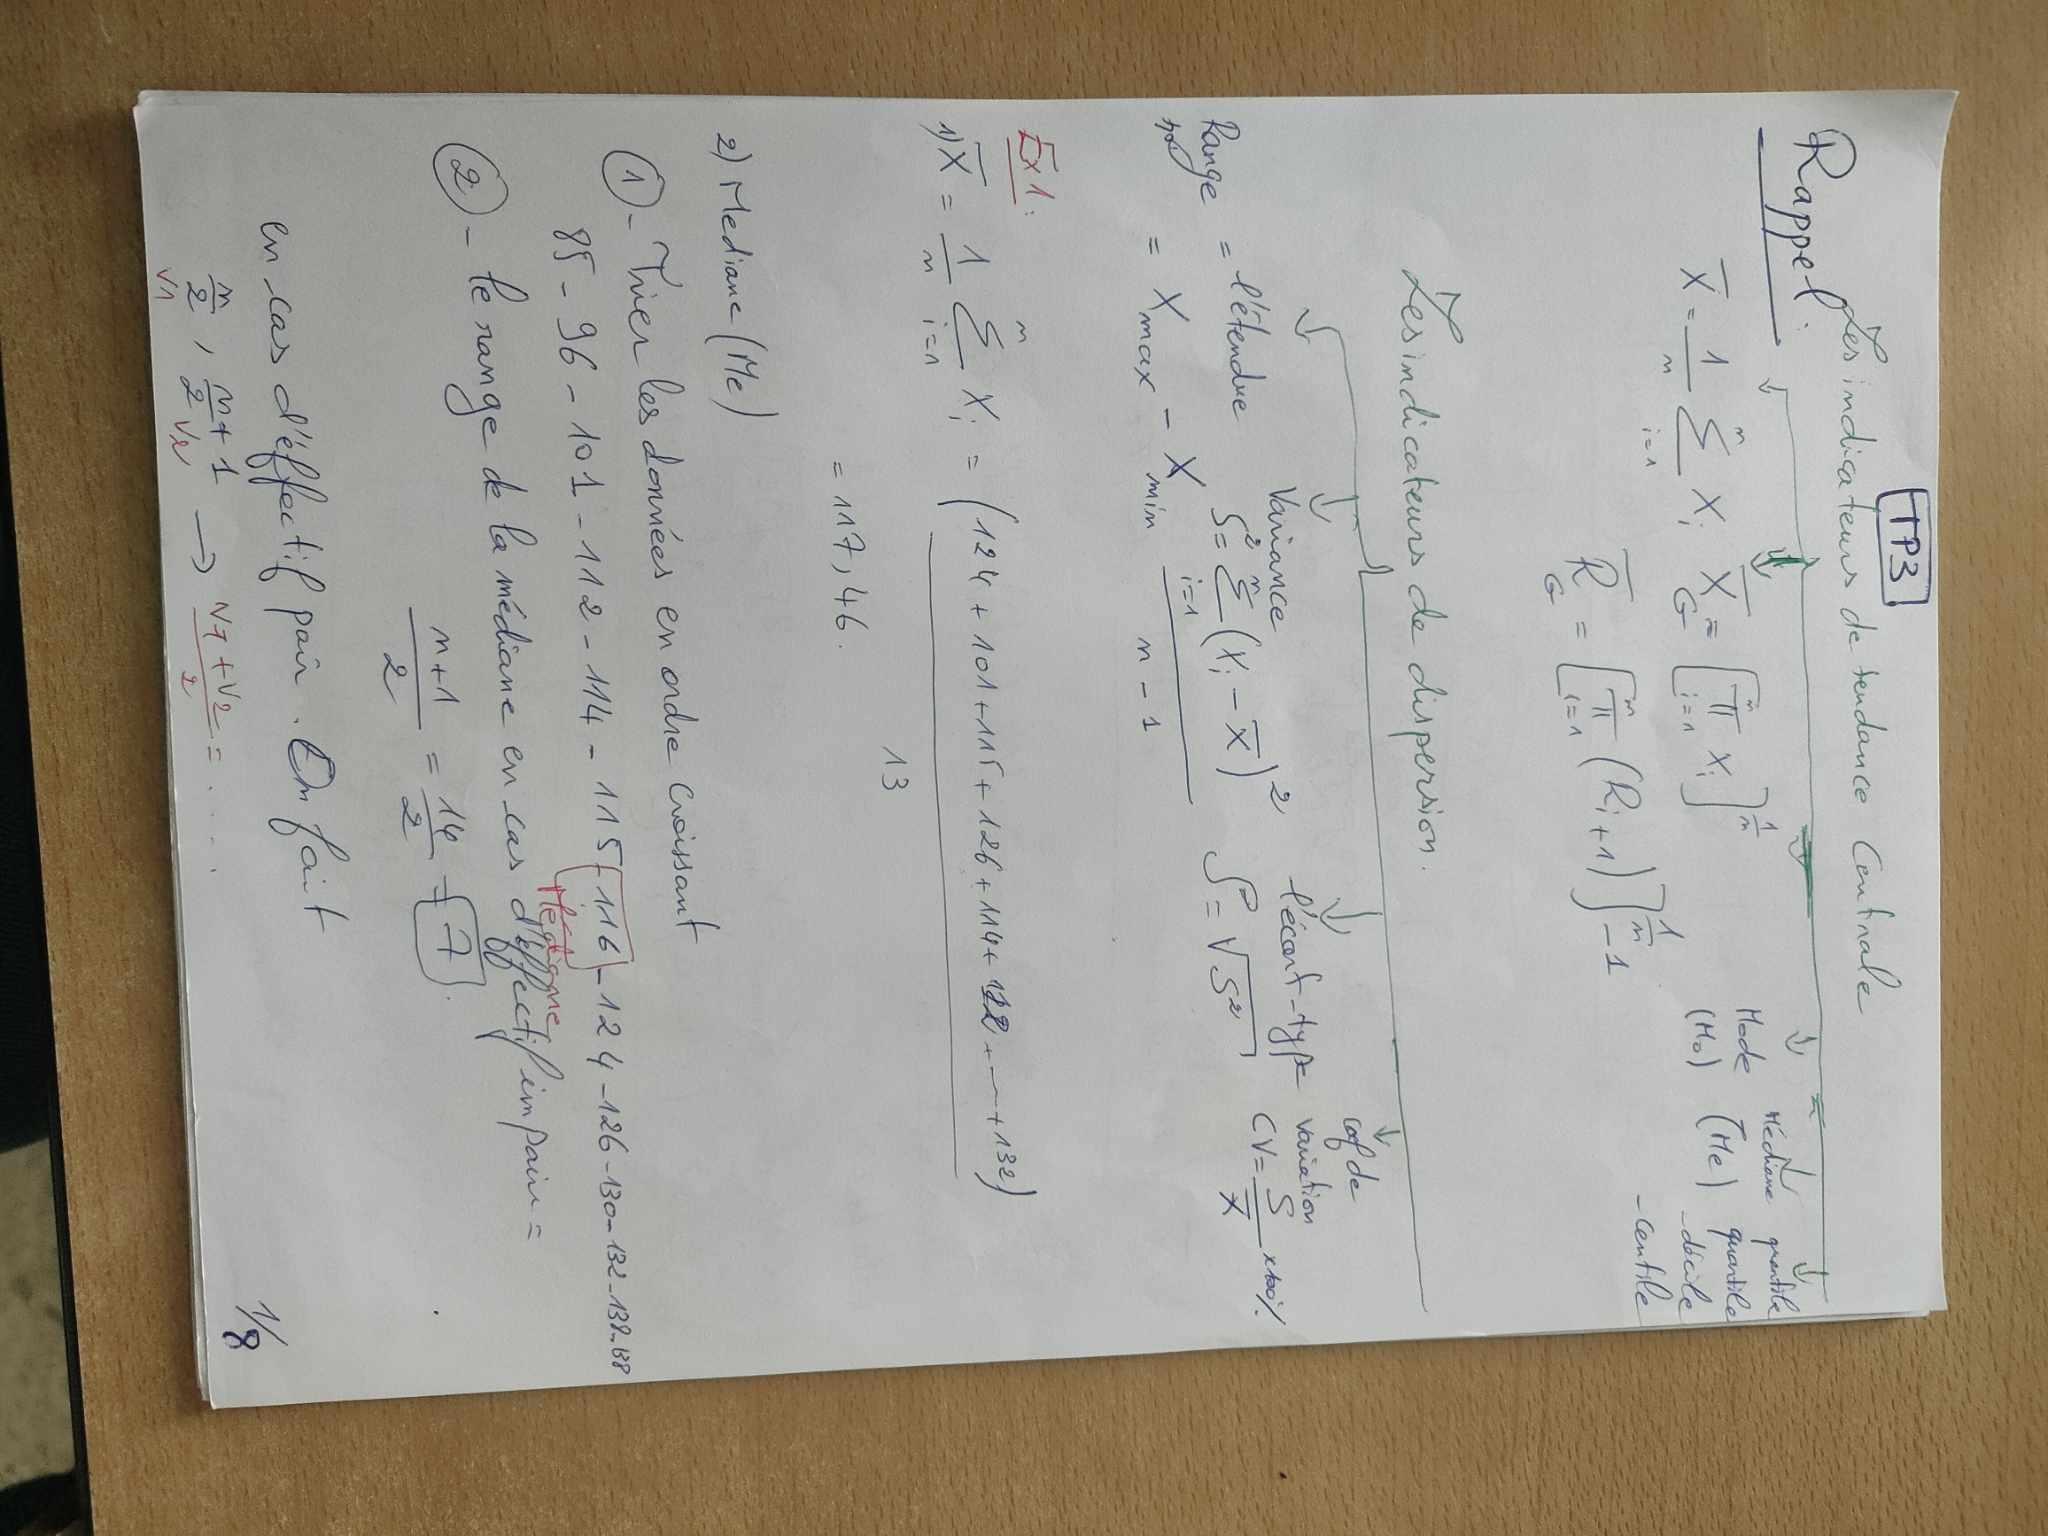 TP3
Rappel :
Les indicateurs de tendance Centrale
X̄ = 1/n Σ(i=1→n) Xi
X̄G = [π(i=1→n) Xi]^(1/n)
R̄G = [π(i=1→n) (Ri+1)]^(1/n) - 1
Mode (Mo)
Médiane (Me)
quantile
quartile
- décile
- centile
Les indicateurs de dispersion.
Range = l'étendue
= Xmax - Xmin
Variance
S² = Σ(i=1→n) (Xi - X̄)² / n - 1
l'écart-type
S = √S²
Coef de variation
CV = S/X̄ x100%
Ex1 :
1) X̄ = 1/n Σ(i=1→n) Xi = (124 + 101 + 115 + 126 + 114 + 112 + ... + 132) / 13
= 117,46.
2) Mediane (Me)
① - Trier les données en ordre croissant
85 - 96 - 101 - 112 - 114 - 115 - 116 - 124 - 126 - 130 - 132 - 138 - 138
Mediane
② - le range de la médiane en cas d'effectif impair =
n+1/2 = 14/2 = 7.
en cas d'éffectif pair. On fait
n/2 , n/2 + 1 → V1 + V2 / 2 = ....
V1 V2
1/8